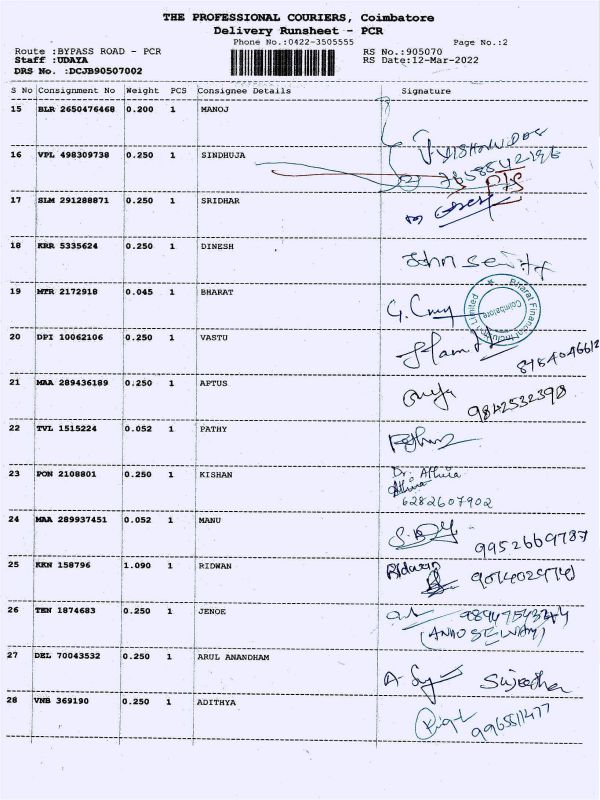 THE PROFESSIONAL COURIERS, Coimbatore
Delivery Runsheet - PCR
Phone No.:0422-3505555 Page No.:2
Route :BYPASS ROAD - PCR RS No.:905070
Staff :UDAYA RS Date:12-Mar-2022
DRS No. :DCJB90507002
S No Consignment No Weight PCS Consignee Details Signature
15 BLR 2650476468 0.200 1 MANOJ
16 VPL 498309738 0.250 1 SINDHUJA
17 SLM 291288871 0.250 1 SRIDHAR
18 KRR 5335624 0.250 1 DINESH
19 MTR 2172918 0.045 1 BHARAT
Bharat Financial Inclusion Limited
Coimbatore
20 DPI 10062106 0.250 1 VASTU
21 MAA 289436189 0.250 1 APTUS 9842532398
22 TVL 1515224 0.052 1 PATHY
23 PON 2108801 0.250 1 KISHAN Dr. Athira
Athira
6282607902
24 MAA 289937451 0.052 1 MANU 9952669787
25 KKN 158796 1.090 1 RIDWAN
26 TEN 1874683 0.250 1 JENOE
27 DEL 70043532 0.250 1 ARUL ANANDHAM
28 VNB 369190 0.250 1 ADITHYA 9965811477